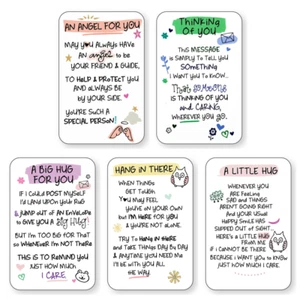 AN ANGEL FOR YOU
MAY YOU ALWAYS HAVE
AN angel to be
YOUR FRIEND & GUIDE,
TO HELP & PROTECT YOU
AND ALWAYS BE
BY YOUR SIDE.
YOU'RE SUCH A
SPECIAL PERSON!
THINKING
OF YOU
THIS MESSAGE
IS SIMPLY TO TELL YOU
SOMETHING
I WANT YOU TO KNOW...
THAT SOMEONE
IS THINKING OF YOU
AND CARING,
WHEREVER YOU GO.
A BIG HUG
FOR YOU
IF I COULD POST MYSELF
I'D LAND UPON YOUR RUG
& JUMP OUT OF AN ENVELOPE
TO GIVE YOU A BIG HUG!
BUT I'M TOO BIG FOR THAT
SO WHENEVER I'M NOT THERE
THIS IS TO REMIND YOU
JUST HOW MUCH
I CARE.
HANG IN THERE
WHEN THINGS
GET TOUGH,
YOU MAY FEEL
YOU'RE ON YOUR OWN
BUT I'M HERE FOR YOU
& YOU'RE NOT ALONE.
TRY TO HANG IN THERE
AND TAKE THINGS DAY BY DAY
& ANYTIME YOU NEED ME
I'LL BE WITH YOU ALL
THE WAY.
A LITTLE HUG
WHENEVER YOU
ARE FEELING
SAD AND THINGS
AREN'T GOING RIGHT
AND YOUR USUAL
HAPPY SMILE HAS
SLIPPED OUT OF SIGHT...
HERE'S A LITTLE HUG
FROM ME
IF I CANNOT BE THERE
BECAUSE I WANT YOU TO KNOW
JUST HOW MUCH I CARE.